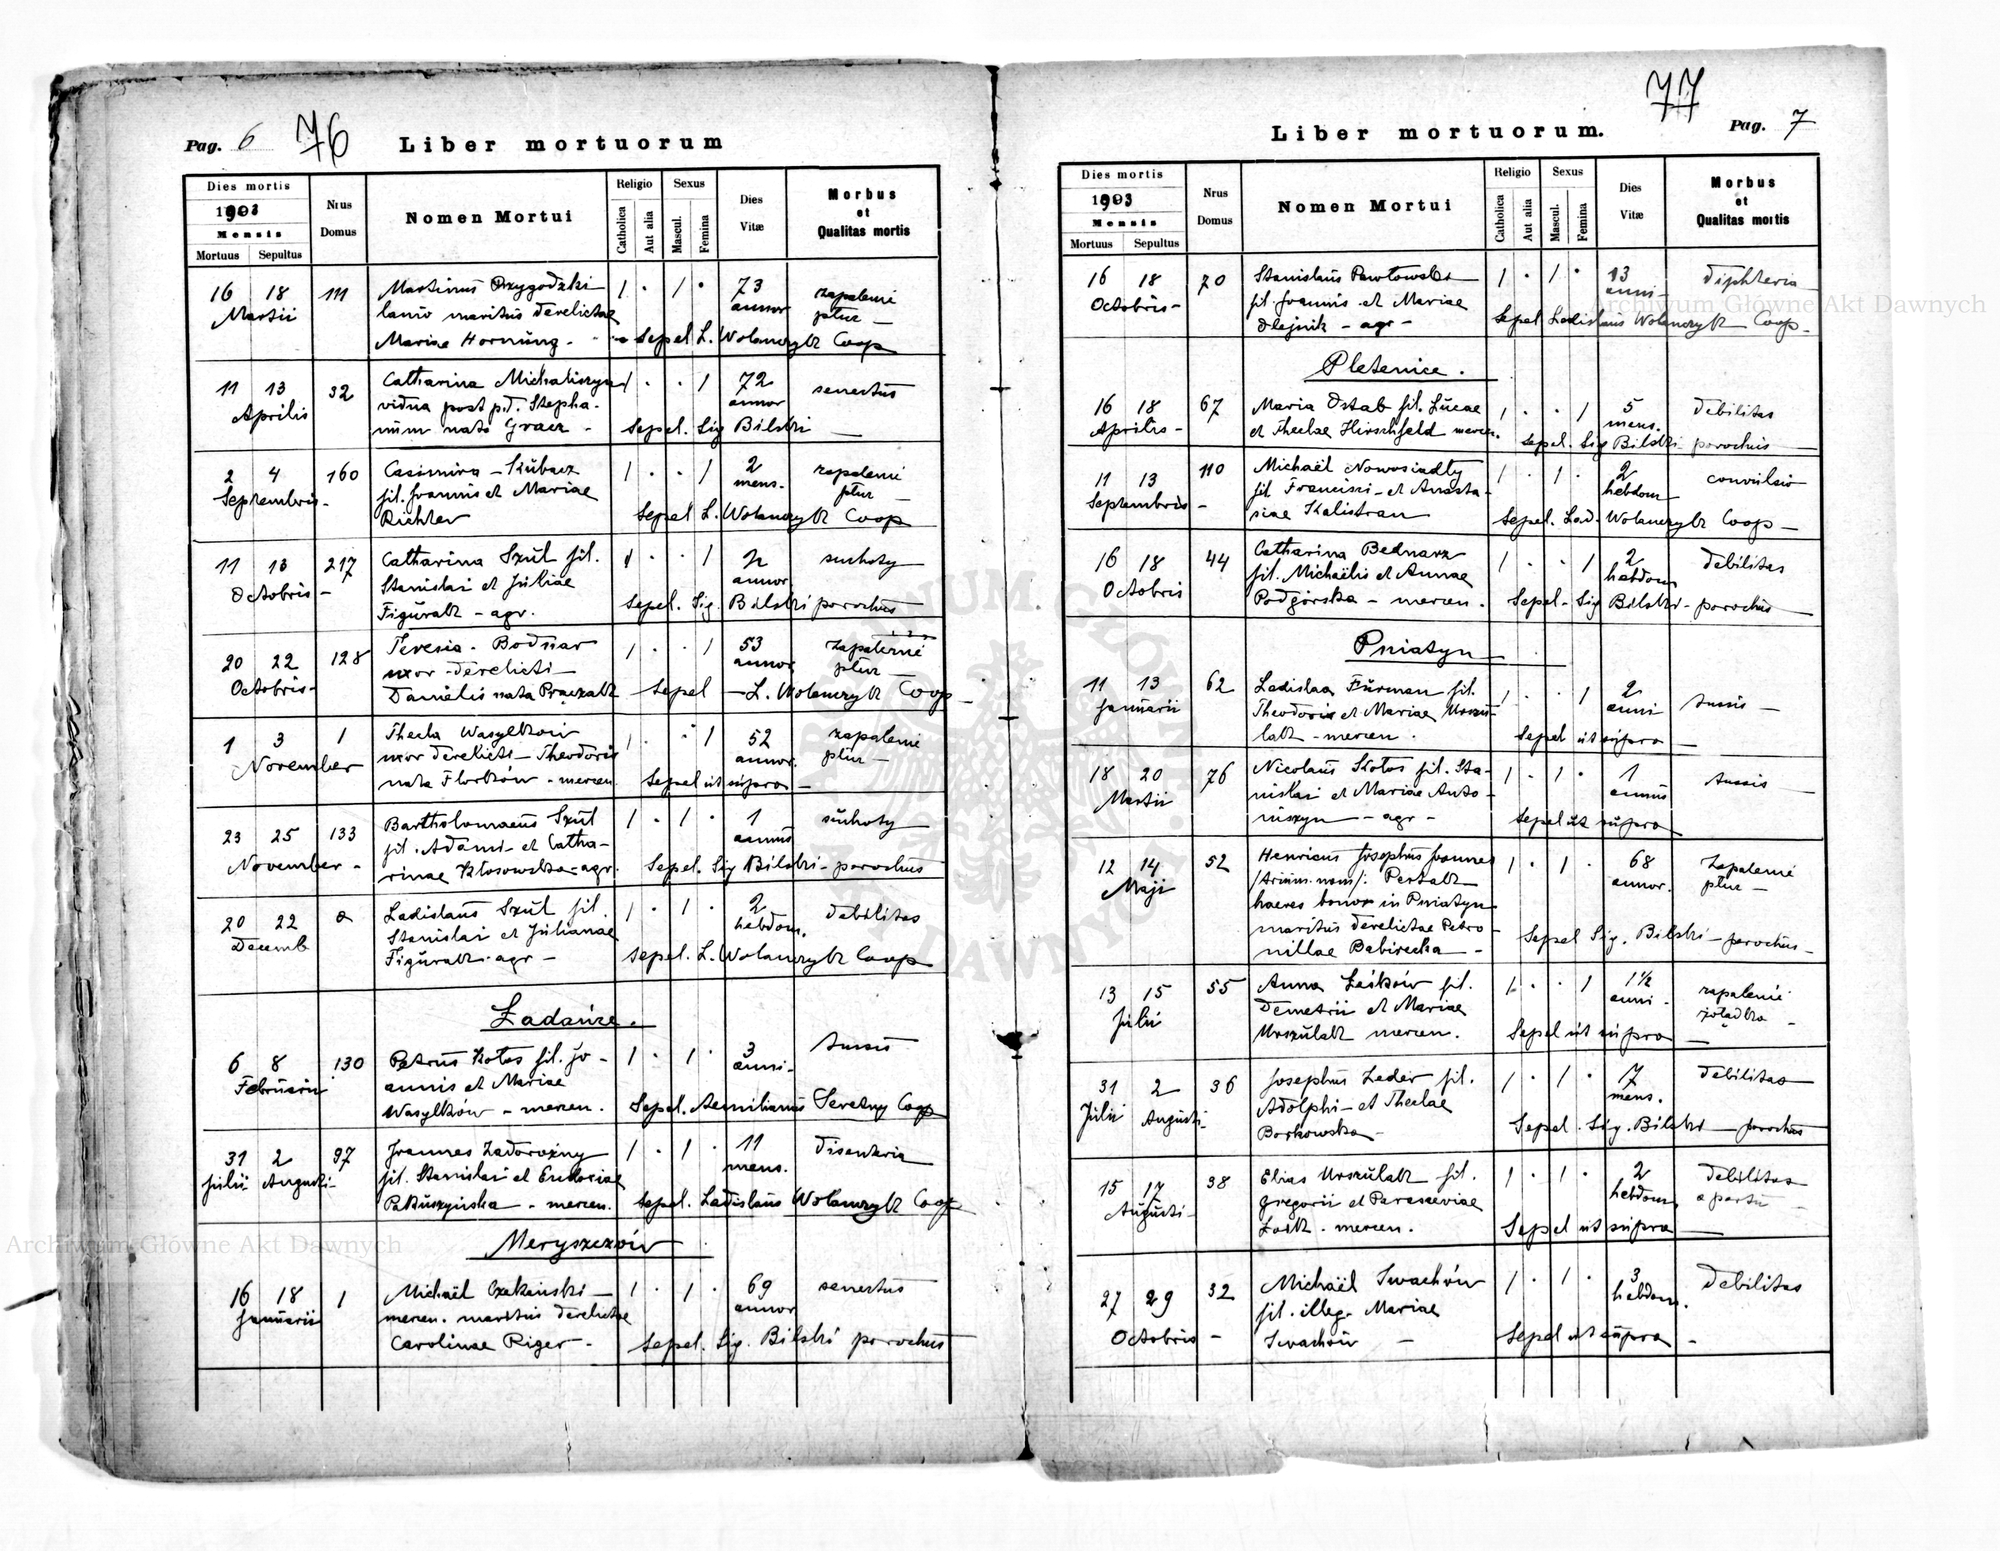 Pag. 6 76 Liber mortuorum
Dies mortis
1903
Mensis
Mortuus Sepultus
Nrus Domus
Nomen Mortui
Religio
Catholica Aut alia
Sexus
Mascul. Femina
Dies Vitæ
Morbus et Qualitas mortis
16 18 111 Martinus Przygodzki 1 · 1 · 73 zapalenie
Martii lanio maritus derelictae annor płuc —
Mariae Hornung - Sepel L. Wolanczyk Coop
11 13 32 Catharina Michaliszyn 1 · · 1 72 senectus
Aprilis vidua post p.d. Stepha- annor
num nata Gracz - Sepel. Sig Bilski —
2 4 160 Casimira - Kubacz 1 · · 1 2 zapalenie
Septembris - fil. Joannis et Mariae mens. płuc —
Richter Sepel L. Wolanczyk Coop
11 13 217 Catharina Szul fil. 1 · · 1 2 suchoty
Octobris - Stanislai et Juliae annor
Figuralk - agr. Sepel. Sig. Bilski parochus
20 22 128 Teresia - Bodnar 1 · · 1 53 zapalenie
Octobris - uxor derelicti - annor płuc —
Danielis nata Praczalk Sepel — L. Wolanczyk Coop
1 3 1 Thecla Wasylków 1 · · 1 52 zapalenie
November uxor derelicti - Theodoris annor. płuc —
nata Florków - mercen. Sepel ut supra —
23 25 133 Bartholomaeus Szul 1 · 1 · 1 suchoty
November - fil. Adami - et Catha- annus
rinae Kłosowska - agr. Sepel. Sig Bilski - parochus
20 22 Ladislaus Szul fil. 1 · 1 · 2 debilitas
Decemb Stanislai et Julianae hebdom.
Figuralk - agr - Sepel. L. Wolanczyk Coop
Ładańce.
6 8 130 Petrus Kotos fil. Jo- 1 · 1 · 3 tussis
Februarii annis et Mariae anni -
Wasylków - mercen. Sepel. Aemilianus Serezny Coop
31 2 97 Joannes Zadorożny 1 · 1 · 11 disenteria
Julii Augusti - fil. Stanislai et Eudoxiae mens.
Pakuszyńska - mercen. Sepel. Ladislaus Wolanczyk Coop
Meryszczów
16 18 1 Michaël Czekański - 1 · 1 · 69 senectus
Januarii mercen. maritus derelictae annor
Carolinae Riger - Sepel. Sig. Bilski parochus
77
Liber mortuorum. Pag. 7
Dies mortis
1903
Mensis
Mortuus Sepultus
Nrus Domus
Nomen Mortui
Religio
Catholica Aut alia
Sexus
Mascul. Femina
Dies Vitæ
Morbus et Qualitas mortis
16 18 70 Stanislaus Pawłowski 1 · 1 · 13 diphteria
Octobris - fil. Joannis et Mariae anni -
Olejnik - agr - Sepel Ladislaus Wolanczyk Coop -
Pletenice.
16 18 67 Maria Ostab fil. Lucae 1 · · 1 5 debilitas
Aprilis - et Theclae Hirschfeld mercen. mens.
Sepel. Sig Bilski parochus
11 13 110 Michaël Nowosiadły 1 · 1 · 2 convulsio
Septembris - fil Francisci - et Anasta- hebdom
siae Kalistran Sepel. Lad. Wolanczyk Coop -
16 18 44 Catharina Bednarz 1 · · 1 2 debilitas
Octobris fil. Michaëlis et Annae hebdom
Podgórska - mercen. Sepel - Sig Bilski - parochus
Pniatyn
11 13 62 Ladislaa Furman fil. 1 · · 1 2 tussis -
Januarii Theodoris et Mariae Urszu- anni
lalk - mercen. Sepel ut supra
18 20 76 Nicolaus Kotos fil. Sta- 1 · 1 · 1 tussis
Martii nislai et Mariae Anto- annus
niszyn - agr - Sepel ut supra
12 14 52 Henricus Josephus Joannes 1 · 1 · 68 zapalenie
Maji annor. płuc —
haeres bonor in Pniatyn
maritus derelictae Petro- Sepel Sig. Bilski - parochus -
nillae Babirecka -
13 15 55 Anna Leśków fil. 1 · · 1 1½ zapalenie
Julii Demetrii et Mariae anni - żołądka -
Urszulalk mercen. Sepel ut supra
31 2 36 Josephus Zeder fil. 1 · 1 · 7 debilitas
Julii Augusti - Adolphi - et Theclae mens.
Borkowska - Sepel. Sig. Bilski — parochus
15 17 38 Elias Urszulalk fil. 1 · 1 · 2 debilitas
Augusti - Gregorii et Parasceviae hebdom a partu -
mercen. Sepel ut supra
27 29 32 Michaël Iwachów 1 · 1 · 3 debilitas
Octobris - fil. illeg. Mariae hebdom.
Iwachów - Sepel ut supra -
Archiwum Główne Akt Dawnych
Archiwum Główne Akt Dawnych
ARCHIWUM GŁÓWNE AKT DAWNYCH